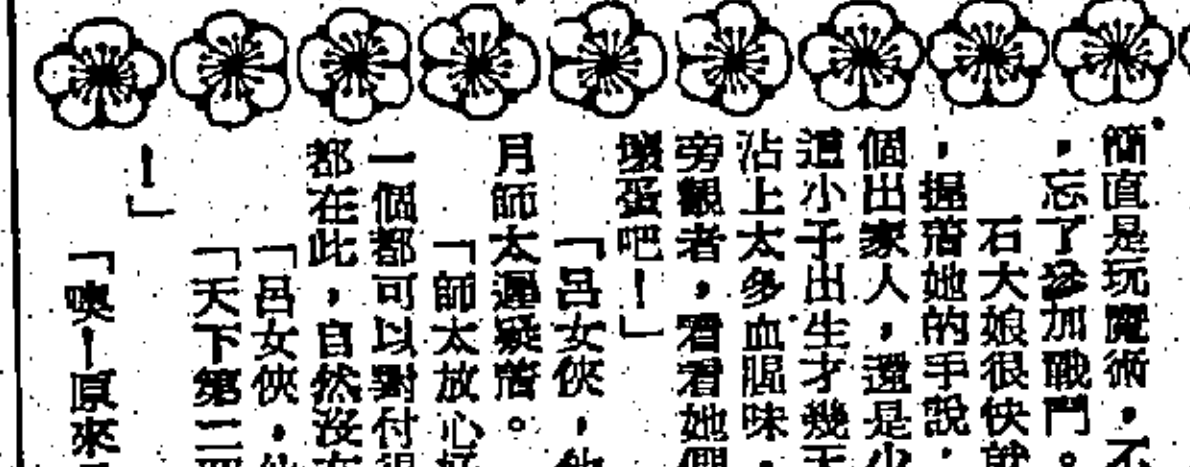 簡直是玩魔術，不
，忘了參加戰鬥。
石大娘很快就
，握著她的手說：
個出家人，還是少
這小子出生才幾天
沾上太多血腥味，
旁觀者，看看她們
壞蛋吧！」
「呂女俠，他
月師太遲疑著。
「師太放心好
一個都可以對付得
都在此，自然沒有
「呂女俠，他
「天下第二
！」
「噢！原來